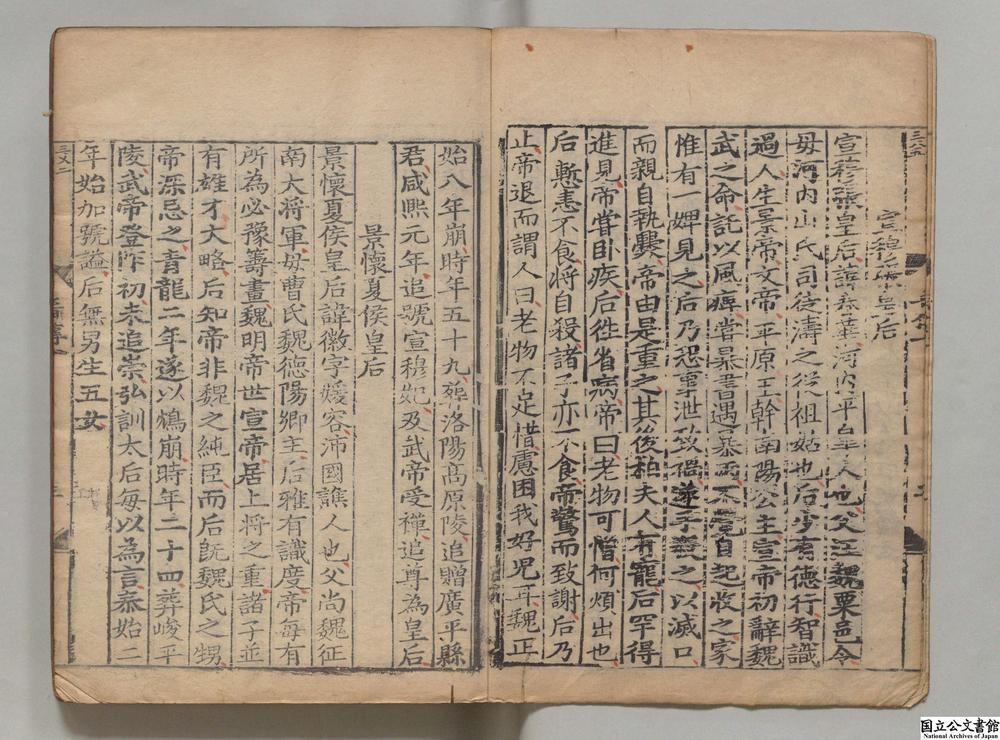 宣穆張皇后
宣穆張皇后諱春華河内平皐人也父汪魏粟邑令
母河内山氏司徒濤之從祖姑也后少有德行智識
過人生景帝文帝平原王幹南陽公主宣帝初辭魏
武之命託以風痺嘗暴書遇暴雨不覺自起收之家
惟有一婢見之后乃恐事泄致禍遂手殺之以滅口
而親自執爨帝由是重之其後柏夫人有寵后罕得
進見帝嘗卧疾后徃省病帝曰老物可憎何煩出也
后慙恚不食將自殺諸子亦不食帝驚而致謝后乃
止帝退而謂人曰老物不足惜慮困我好兒耳魏正
始八年崩時年五十九葬洛陽高原陵追贈廣平縣
君咸熙元年追號宣穆妃及武帝受禪追尊為皇后
景懷夏侯皇后
景懷夏侯皇后諱徽字媛容沛國譙人也父尚魏征
南大將軍母曹氏魏德陽鄉主后雅有識度帝每有
所為必豫籌畫魏明帝世宣帝居上將之重諸子並
有雄才大略后知帝非魏之純臣而后旣魏氏之甥
帝深忌之青龍二年遂以鴆崩時年二十四葬峻平
陵武帝登阼初未追崇弘訓太后每以為言泰始二
年始加號謚后無男生五女
国立公文書館
National Archives of Japan